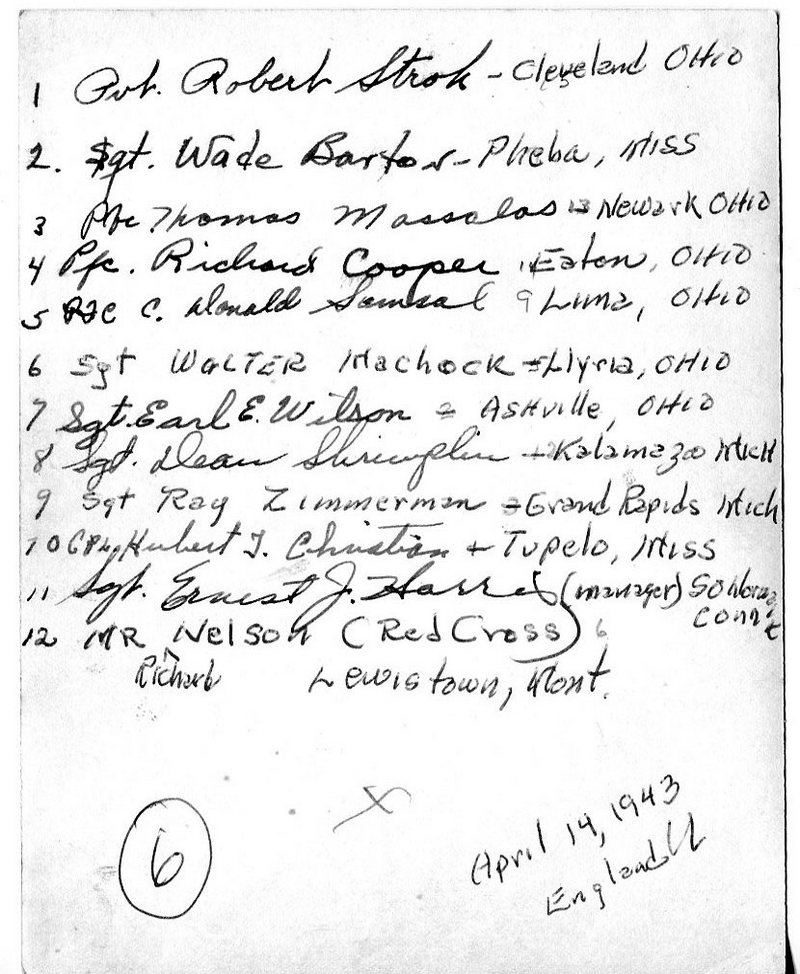 1 Pvt. Robert Strok - Cleveland OHIO
2. Sgt. Wade Barton - Pheba, Miss
3 Pfc Thomas Massalas - Newark OHIO
4 Pfc. Richard Cooper Eaton, OHIO
5 Pfc C. Donald Samsal Lima, OHIO
6 Sgt WALTER Machock - Elyria, OHIO
7 Sgt. Earl E. Wilson = Ashville, OHIO
8 Sgt. Dean Shrimplin - Kalamazoo Mich
9 Sgt Ray Zimmerman - Grand Rapids Mich
10 Cpl. Hubert J. Christian + Tupelo, Miss
11 Sgt. Ernest J. Harris (manager)
Conn
12 MR Nelson (Red Cross) 6
Richard Lewistown, Mont.
X
6
April 14, 1943
England